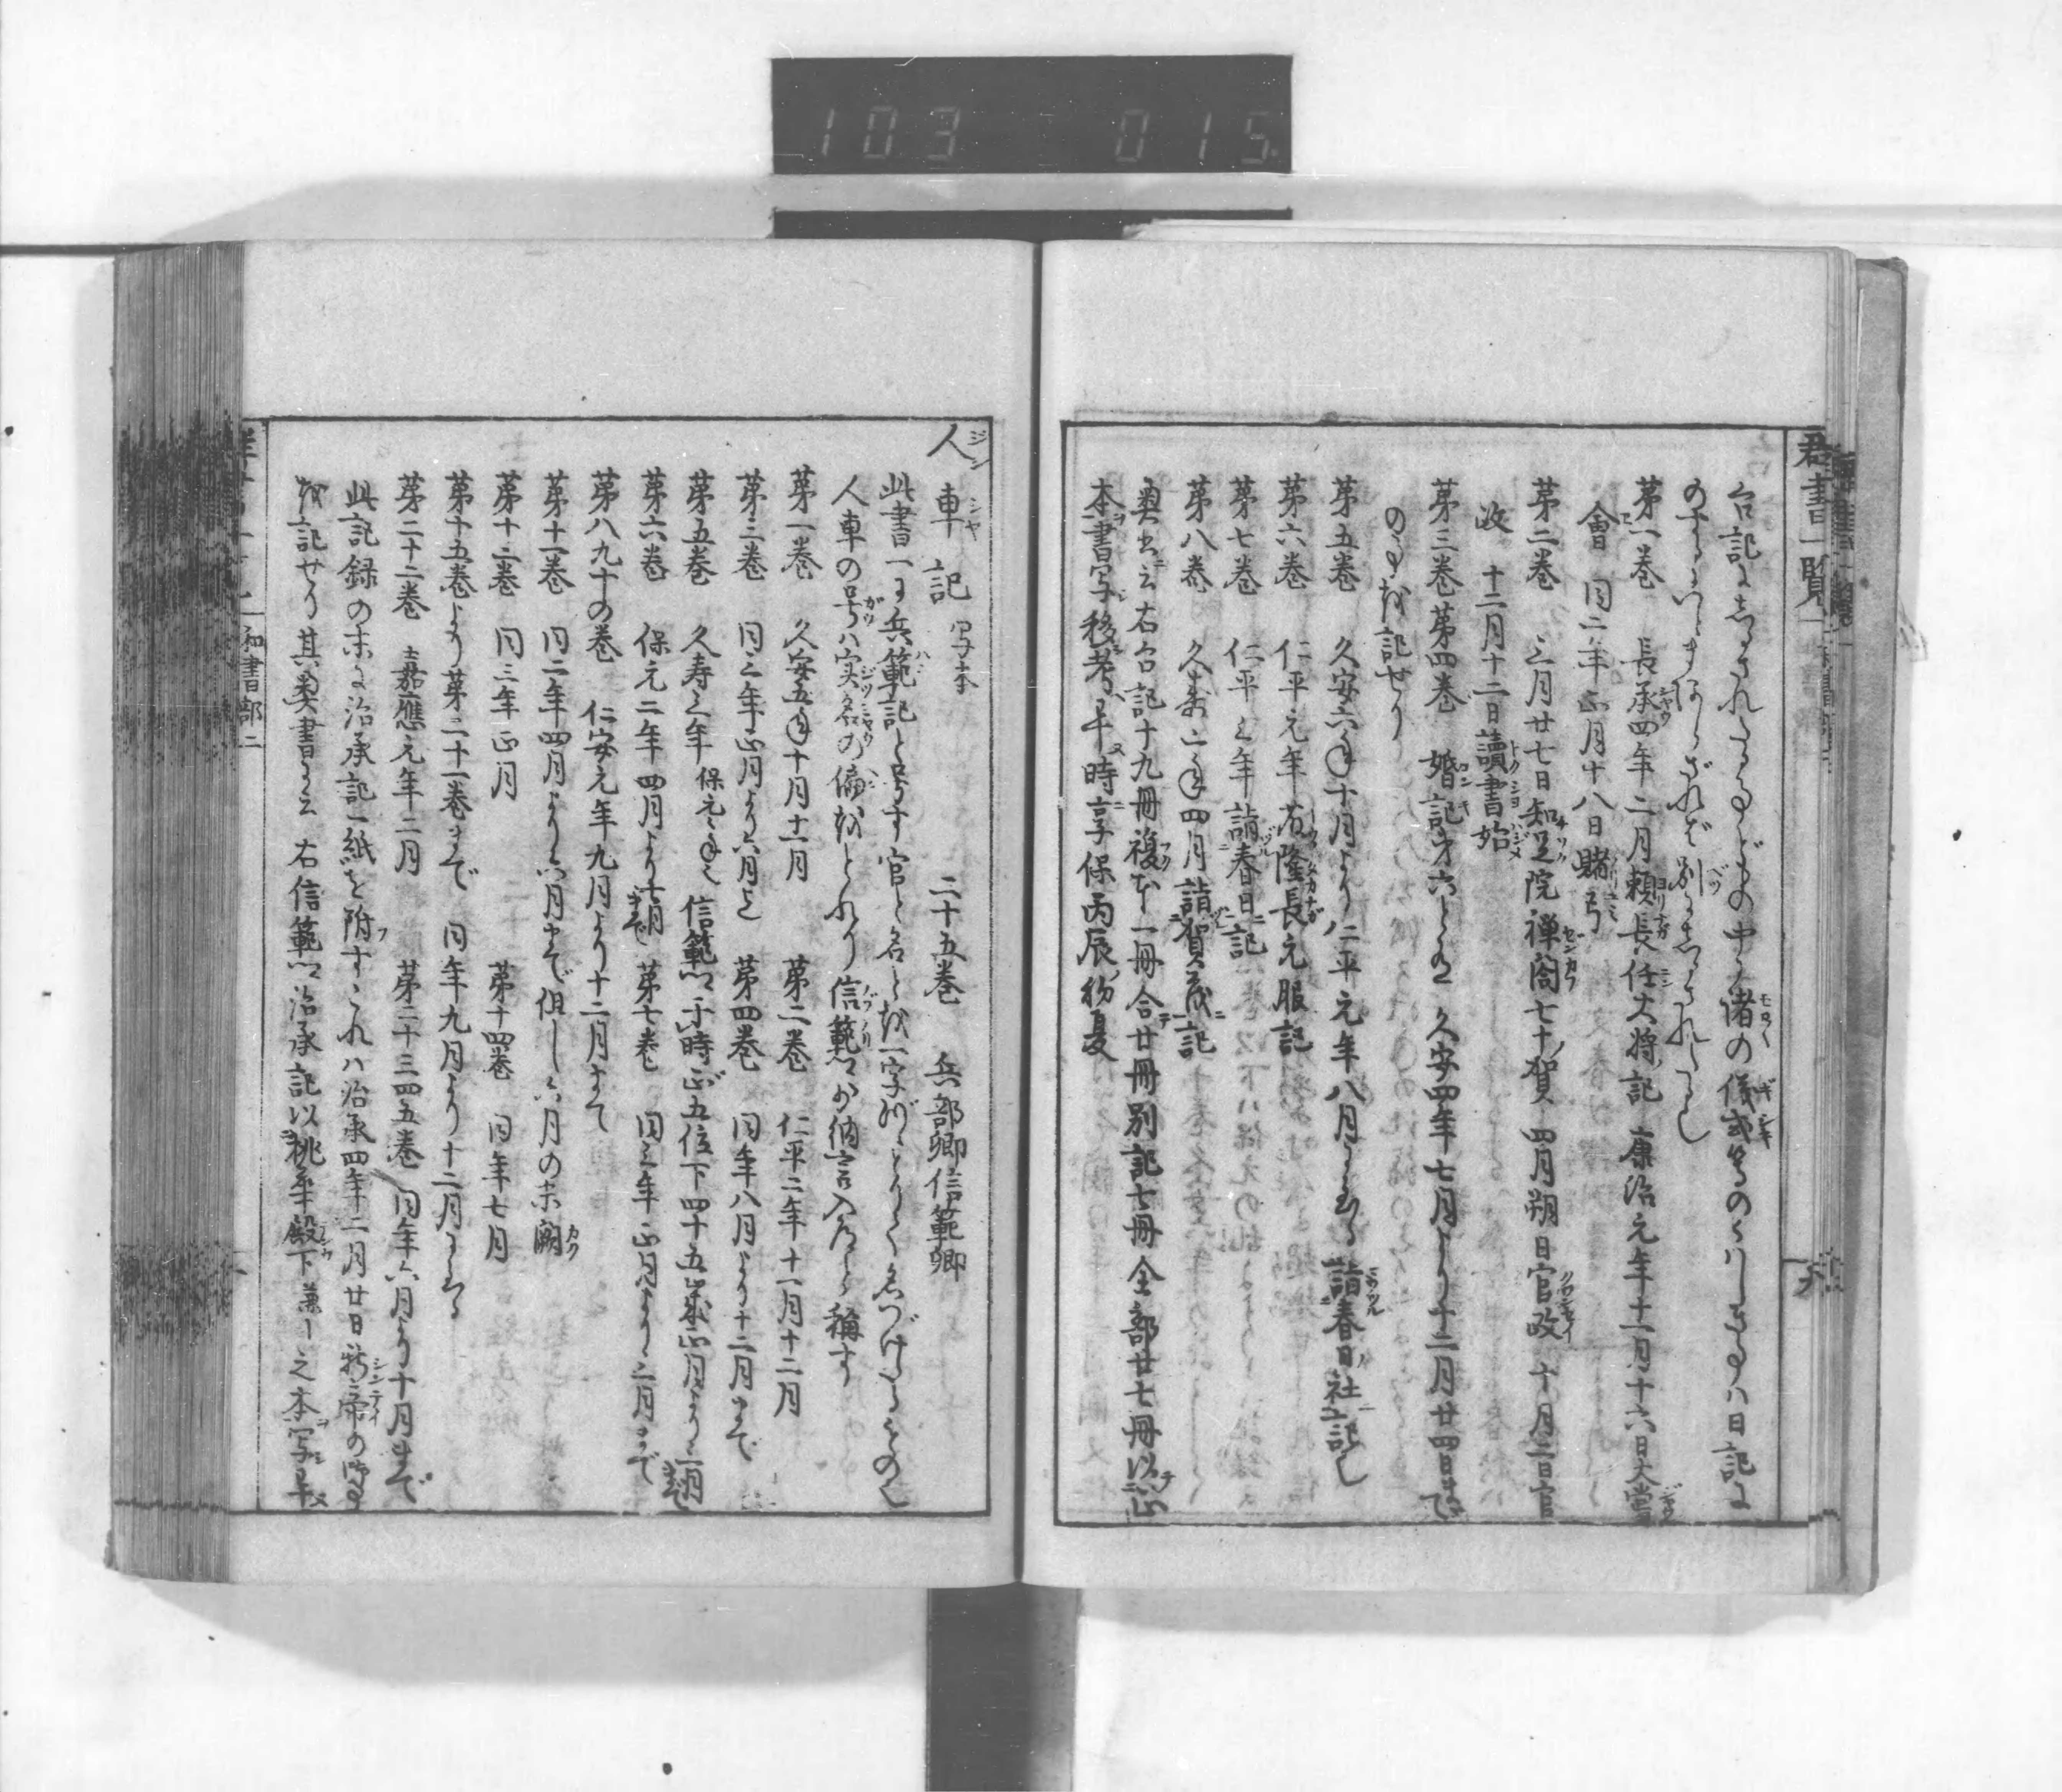 103 015
群書一覧
台記にしるされたる事どもの中に諸の儀式等のくはしき事ハ日記に
のするにいとまあらざれば別にしるされたるし
第一巻 長承四年二月頼長任大将記 康治元年十一月十六日大嘗
會 同二年正月十八日賭弓
第二巻 三月廿七日知足院禅閤七十賀 四月朔日官政 十月二日官
政 十二月十二日讀書始
第三巻第四巻 婚記 久安四年七月より十二月廿四日まで
の事を記せり
第五巻 久安六年十月より仁平元年八月にいたる 詣春日社記
第六巻 仁平元年 隆長元服記
第七巻 仁平三年 詣春日記
第八巻 久寿二年四月 詣賀茂記
奥書云右台記十九冊複本一冊合廿冊別記七冊全部廿七冊以正
本書写移考早 時享保丙辰初夏
人車記 写本 二十五巻 兵部卿信範卿
此書一に兵範記と号す官と名とを一字づゝとりて名づけしもの也
人車の号ハ実名の偏をとれり信範を少納言入道と稱す
第一巻 久安五年十月十一月 第二巻 仁平二年十一月十二月
第三巻 同三年正月より六月迄 第四巻 同年八月より十二月まで
第五巻 久寿三年 保元々年也 信範 于時正五位下四十五歳正月より三月まで
第六巻 保元二年四月より七月まで 第七巻 同三年正月より三月まで
第八九十の巻 仁安元年九月より十二月まで
第十一巻 同二年四月より六月まで但し六月の末闕
第十二巻 同三年正月 第十四巻 同年七月
第十五巻より第二十一巻まで 同年九月より十二月にいたる
第二十二巻 嘉應元年二月 第二十三四五巻 同年六月より十月まで
此記録の末に治承記一紙を附すこれハ治承四年二月廿日新帝の御事
を記せり其奥書に云 右信範 治承記以桃華殿下兼一之本写早
和書部二